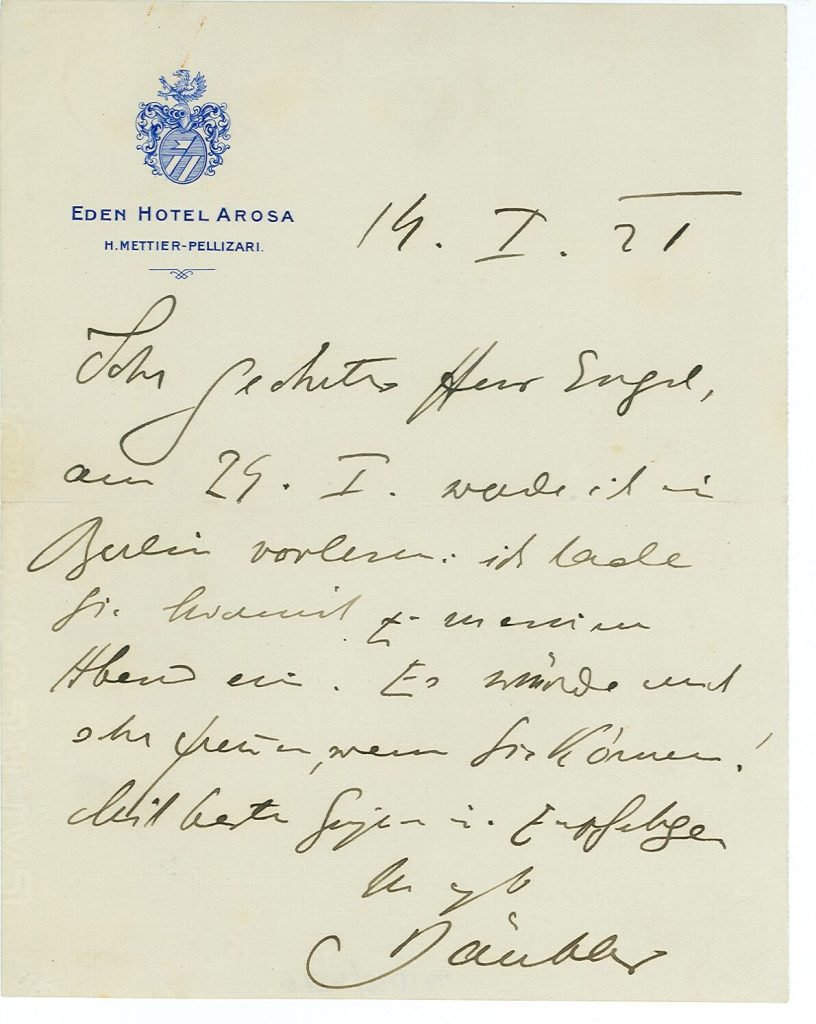 EDEN HOTEL AROSA
H. METTIER-PELLIZARI.
14. I. 21
Sehr geehrter Herr Engel,
am 29. I. werde ich in
Berlin vorlesen: ich lade
Sie hiermit zu meinem
Abend ein. Es würde mich
sehr freuen, wenn Sie können!
Mit besten Grüssen u. Empfehlungen
Ihr
Däubler